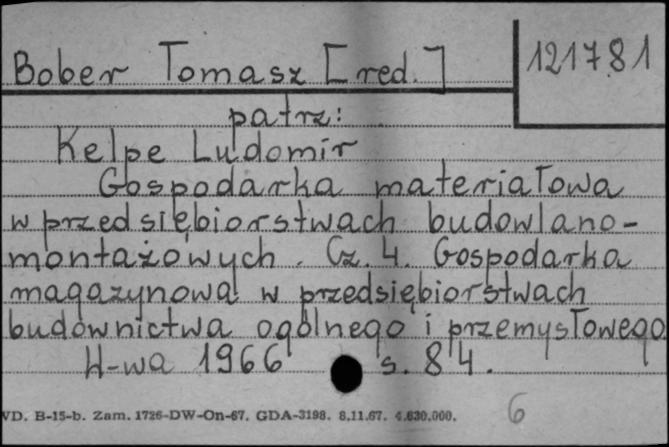 Bober Tomasz [red.]
121781
patrz:
Kelpe Ludomir
Gospodarka materiałowa
w przedsiębiorstwach budowlano-
montażowych. Cz. 4. Gospodarka
magazynowa w przedsiębiorstwach
budownictwa ogólnego i przemysłowego
W-wa 1966 s. 84.
VD. B-15-b. Zam. 1726-DW-On-67. GDA-3198. 8.11.67. 4.630.000.
6